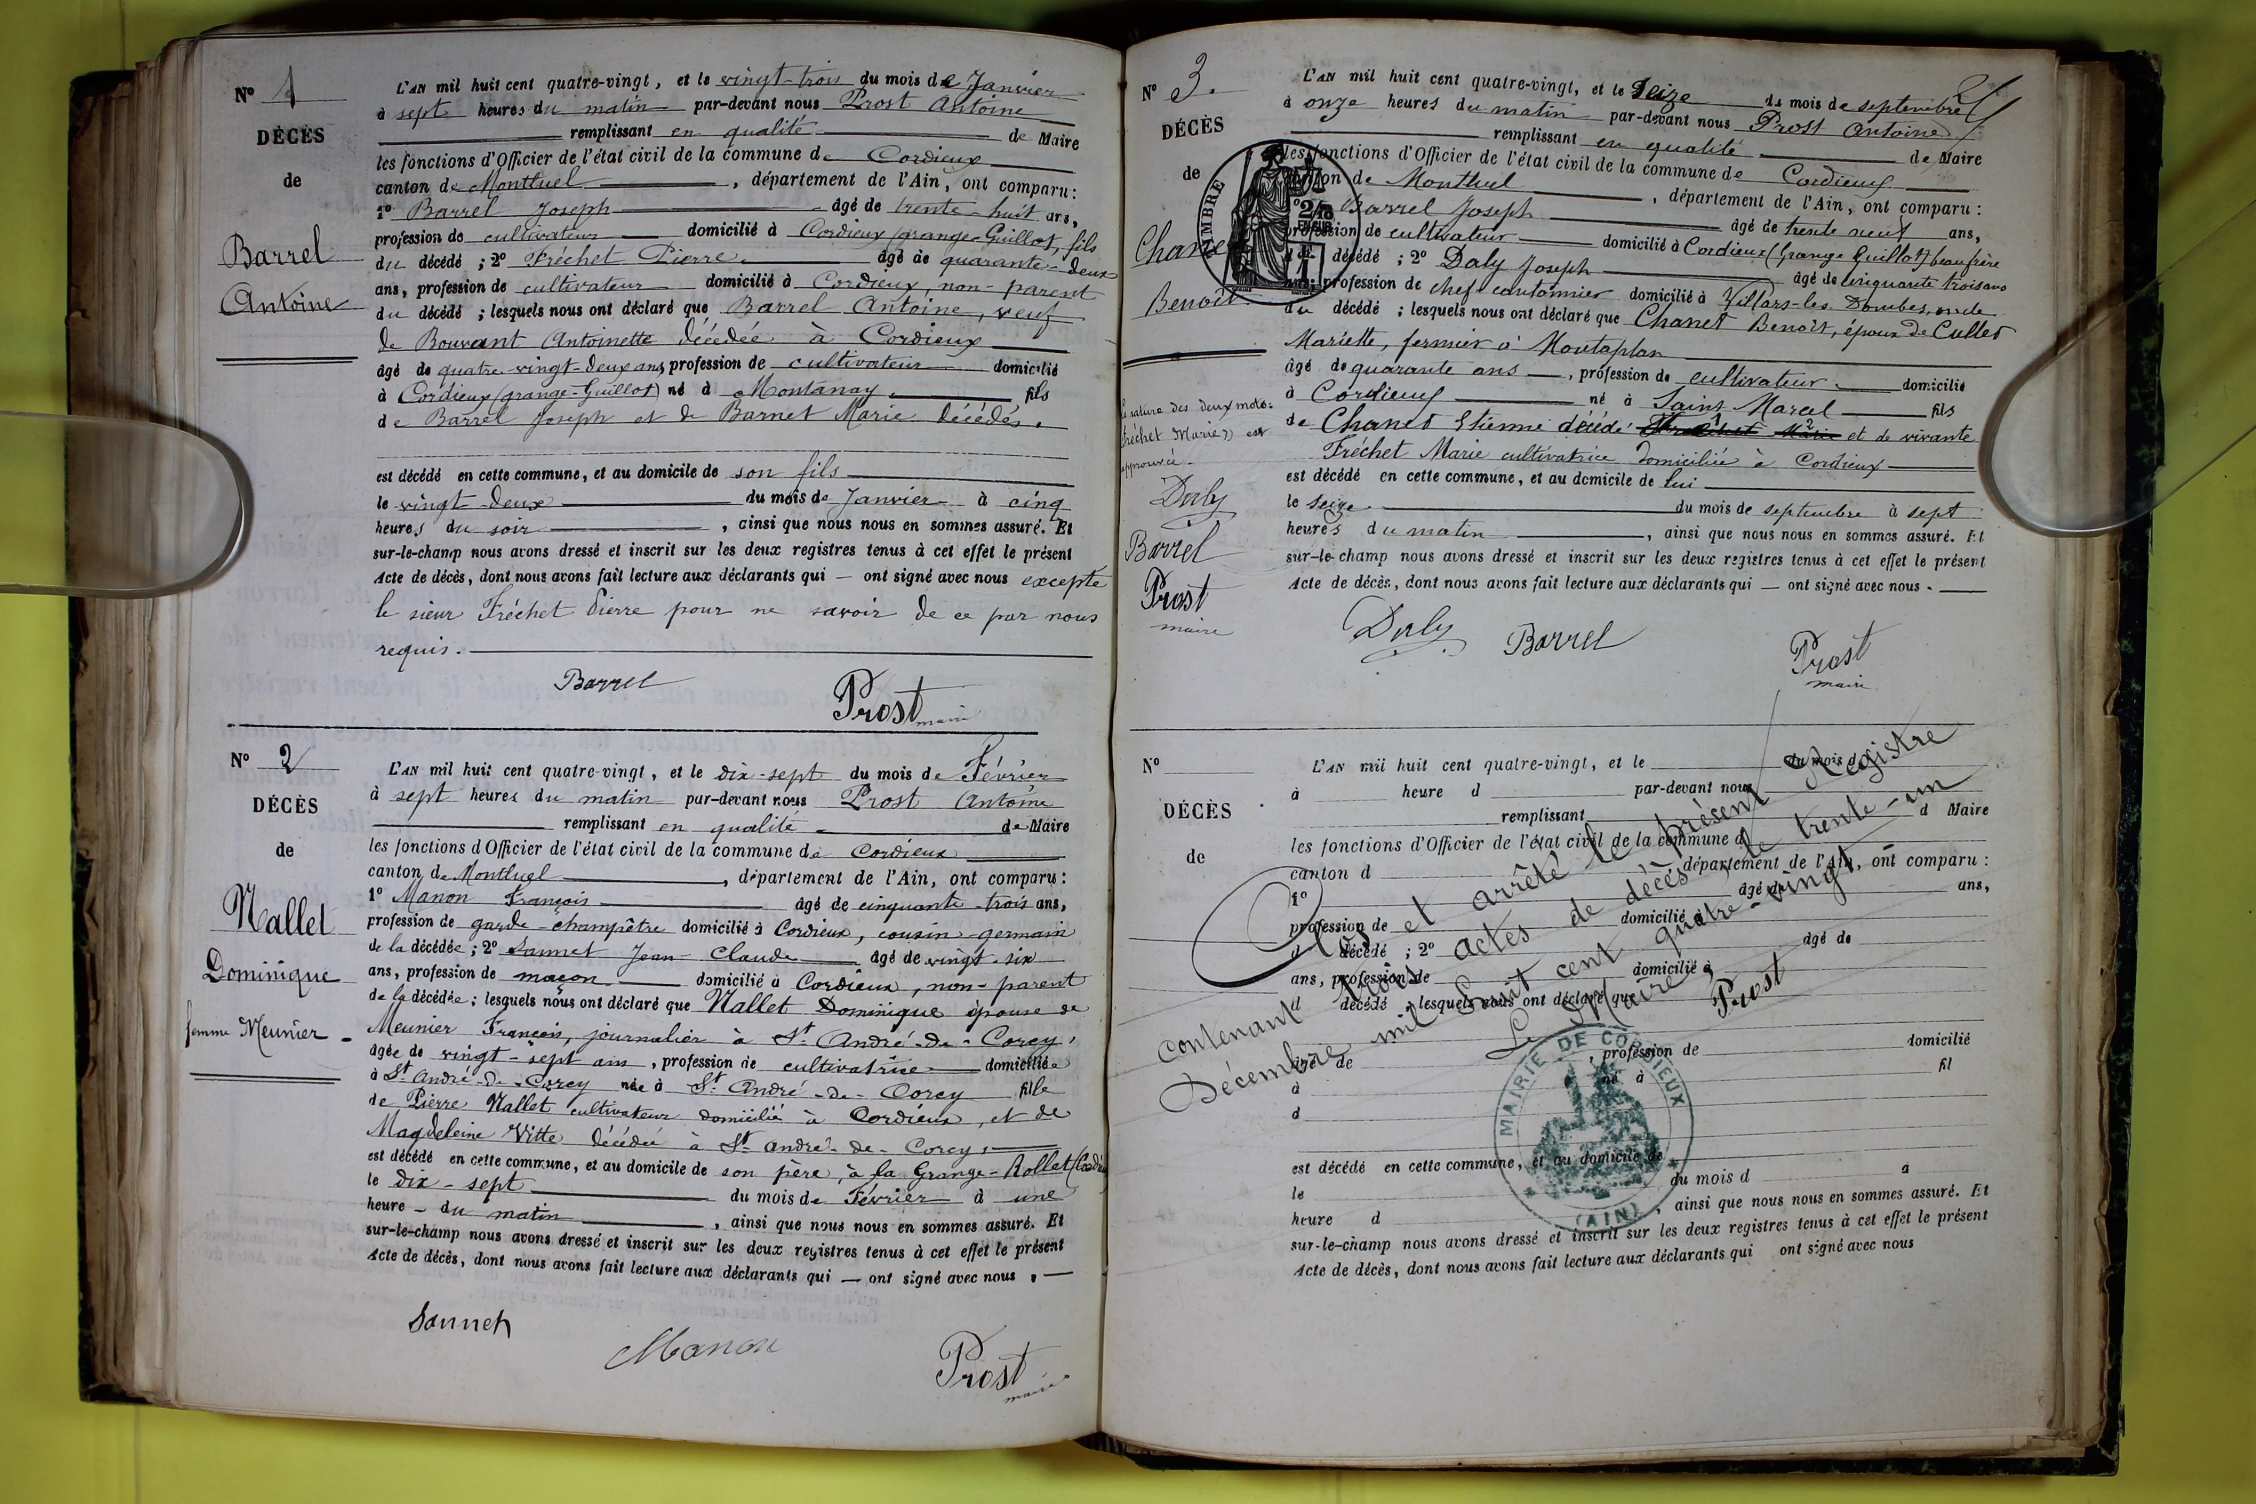 N° 1
DÉCÈS
de
Barrel
Antoine
L'AN mil huit cent quatre-vingt, et le vingt-trois du mois de Janvier
à sept heures du matin par-devant nous Prost Antoine
remplissant en qualité de Maire
les fonctions d'Officier de l'état civil de la commune de Cordieux
canton de Montluel, département de l'Ain, ont comparu :
1° Barrel Joseph âgé de trente-huit ans,
profession de cultivateur domicilié à Cordieux (grange-Guillot), fils
du décédé ; 2° Fréchet Pierre âgé de quarante-deux
ans, profession de cultivateur domicilié à Cordieux, non-parent
du décédé ; lesquels nous ont déclaré que Barrel Antoine, veuf
de Bouvant Antoinette décédée à Cordieux
âgé de quatre-vingt-deux ans, profession de cultivateur domicilié
à Cordieux (grange-Guillot) né à Montanay fils
de Barrel Joseph et de Barnet Marie décédés.
est décédé en cette commune, et au domicile de son fils
le vingt-deux du mois de Janvier à cinq
heures du soir, ainsi que nous nous en sommes assuré. Et
sur-le-champ nous avons dressé et inscrit sur les deux registres tenus à cet effet le présent
Acte de décès, dont nous avons fait lecture aux déclarants qui — ont signé avec nous excepté
le sieur Fréchet Pierre pour ne savoir de ce par nous
requis.
Barrel
Prost maire
N° 2
DÉCÈS
de
Nallet
Dominique
femme Meunier
L'AN mil huit cent quatre-vingt, et le dix-sept du mois de Février
à sept heures du matin par-devant nous Prost Antoine
remplissant en qualité de Maire
les fonctions d'Officier de l'état civil de la commune de Cordieux
canton de Montluel, département de l'Ain, ont comparu :
1° Manon François âgé de cinquante-trois ans,
profession de garde-champêtre domicilié à Cordieux, cousin-germain
de la décédée ; 2° Sannet Jean-Claude âgé de vingt-six
ans, profession de maçon domicilié à Cordieux, non-parent
de la décédée ; lesquels nous ont déclaré que Nallet Dominique épouse de
Meunier François, journalier à St André-de-Corcy,
âgée de vingt-sept ans, profession de cultivatrice domiciliée
à St André-de-Corcy née à St André-de-Corcy fille
de Pierre Nallet cultivateur domicilié à Cordieux, et de
Magdeleine Vitte décédée à St André-de-Corcy,
est décédé en cette commune, et au domicile de son père, à la Grange-Rollet
le dix-sept du mois de Février à une
heure du matin, ainsi que nous nous en sommes assuré. Et
sur-le-champ nous avons dressé et inscrit sur les deux registres tenus à cet effet le présent
Acte de décès, dont nous avons fait lecture aux déclarants qui — ont signé avec nous.
Sannet
Manon
Prost
maire
N° 3.
DÉCÈS
de
Chanet
Benoît
TIMBRE
L'AN mil huit cent quatre-vingt, et le seize du mois de septembre
à onze heures du matin par-devant nous Prost Antoine
remplissant en qualité de Maire
les fonctions d'Officier de l'état civil de la commune de Cordieux
canton de Montluel, département de l'Ain, ont comparu :
Barrel Joseph âgé de trente neuf ans,
profession de cultivateur domicilié à Cordieux (Grange Guillot) beau frère
du décédé ; 2° Daly Joseph âgé de cinquante trois ans
ans, profession de chef cantonnier domicilié à Villars-les-Dombes, oncle
du décédé ; lesquels nous ont déclaré que Chanet Benoît, époux de Cullet
Mariette, fermier à Montaplan
âgé de quarante ans, profession de cultivateur domicilié
à Cordieux né à Saint Marcel fils
de Chanet Etienne décédé et de vivante
Fréchet Marie cultivatrice domiciliée à Cordieux
est décédé en cette commune, et au domicile de lui
le seize du mois de septembre à sept
heures du matin, ainsi que nous nous en sommes assuré. Et
sur-le-champ nous avons dressé et inscrit sur les deux registres tenus à cet effet le présent
Acte de décès, dont nous avons fait lecture aux déclarants qui — ont signé avec nous.
rature des deux mots :
Fréchet Marie) est
approuvée.
Daly
Barrel
Prost
maire
Daly Barrel
Prost
maire
N°
DÉCÈS
de
L'AN mil huit cent quatre-vingt, et le du mois d
à heure d par-devant nous
remplissant d Maire
les fonctions d'Officier de l'état civil de la commune d
canton d département de l'Ain, ont comparu :
1° âgé de ans,
profession de domicilié à
d décédé ; 2° âgé de
ans, profession de domicilié à
d décédé ; lesquels nous ont déclaré que
âgé de , profession de domicilié
à né à fil
d
est décédé en cette commune, et au domicile de
le du mois d à
heure d , ainsi que nous nous en sommes assuré. Et
sur-le-champ nous avons dressé et inscrit sur les deux registres tenus à cet effet le présent
Acte de décès, dont nous avons fait lecture aux déclarants qui ont signé avec nous
Clos et arrêté le présent Registre
contenant trois actes de décès le trente-un
Décembre mil huit cent quatre-vingt.
Le Maire,
Prost
MAIRIE DE CORDIEUX
(AIN)